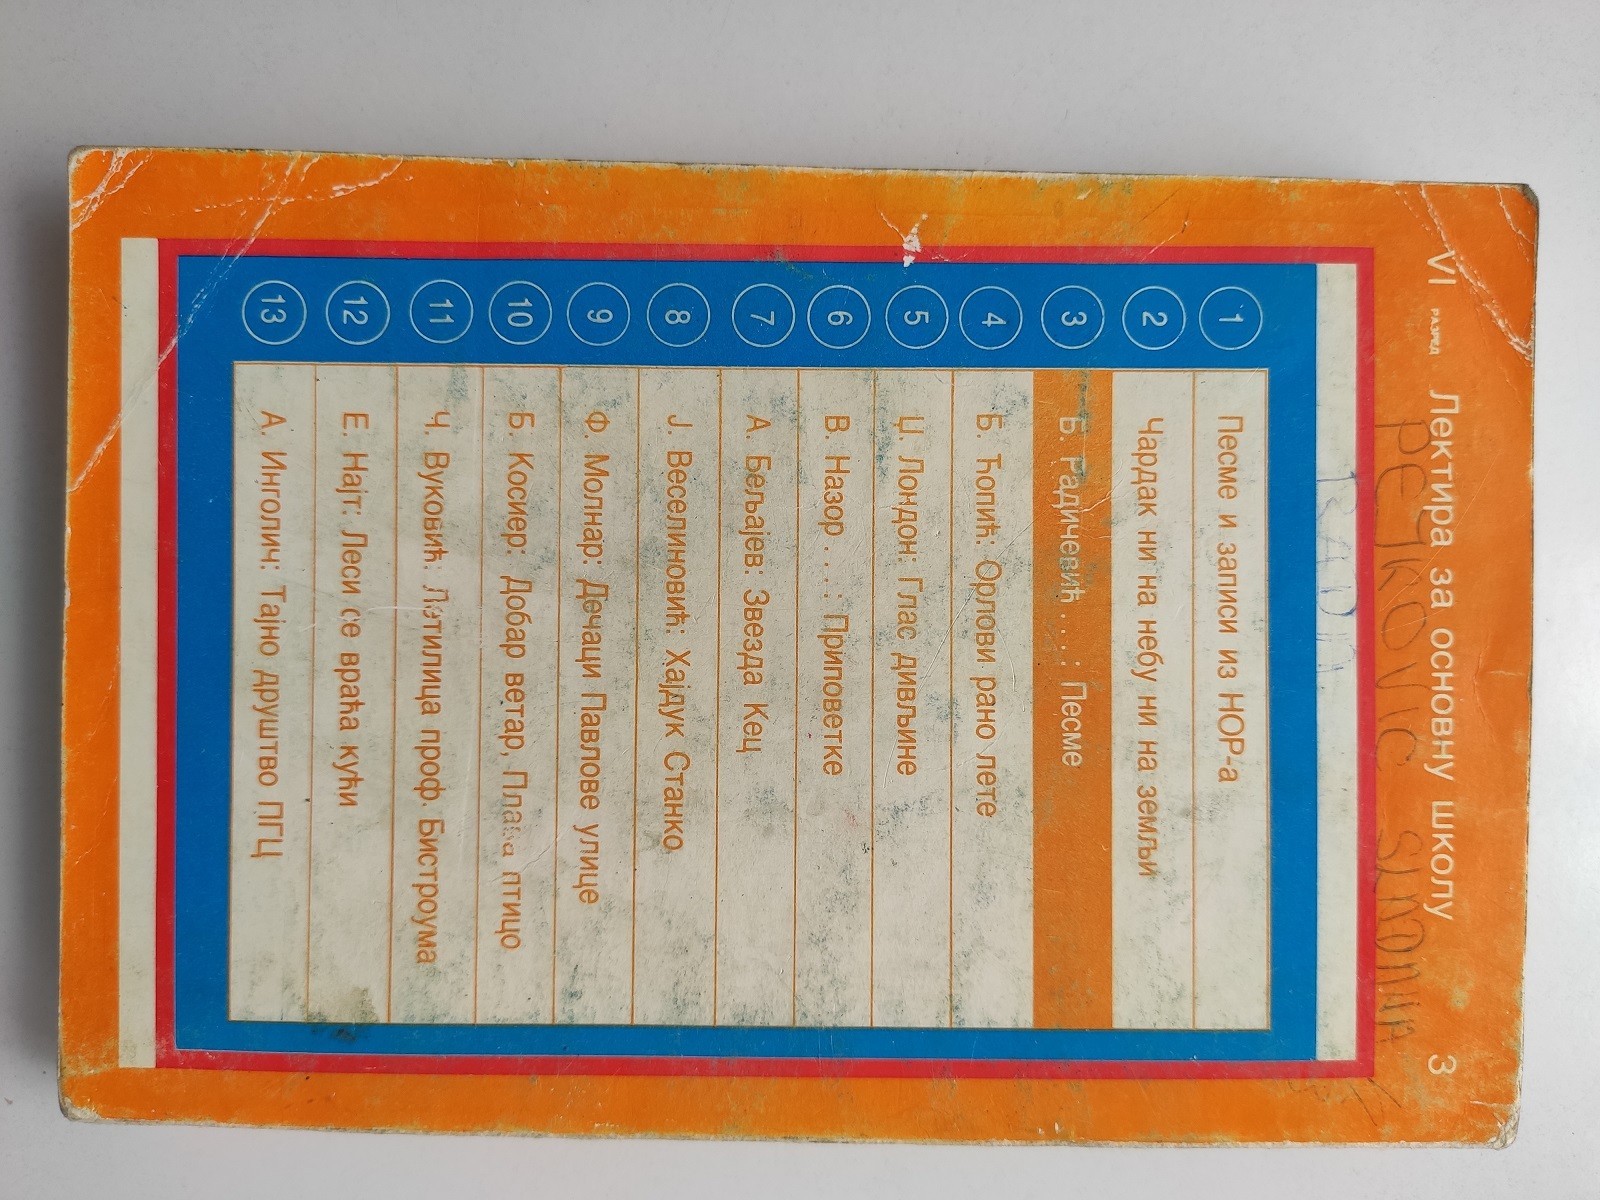 VI РАЗРЕД Лектира за основну школу 3
PEJKOVIC
RADA
1 Песме и записи из НОР-а
2 Чардак ни на небу ни на земљи
3 Б. Радичевић . . . : Песме
4 Б. Ћопић: Орлови рано лете
5 Џ. Лондон: Глас дивљине
6 В. Назор . . .: Приповетке
7 А. Бељајев: Звезда Кец
8 Ј. Веселиновић: Хајдук Станко
9 Ф. Молнар: Дечаци Павлове улице
10 Б. Косиер: Добар ветар, Плава птицо
11 Ч. Вуковић: Летилица проф. Бистроума
12 Е. Најт: Леси се враћа кући
13 А. Инголич: Тајно друштво ПГЦ